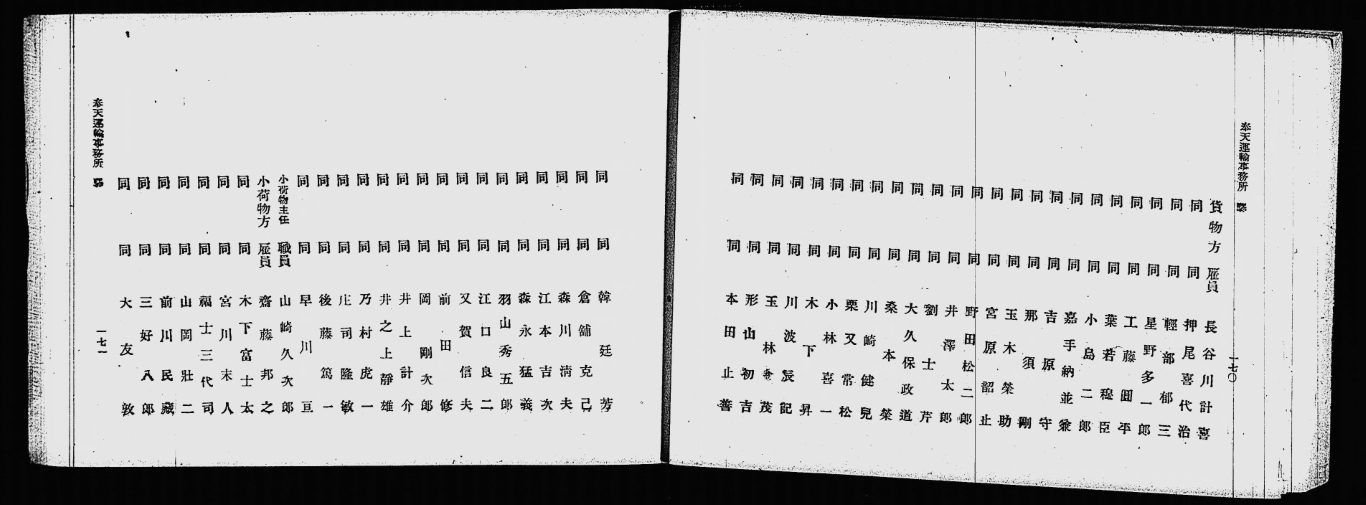 奉天運輸事務所
一七〇
貨物方 雇員 長谷川計喜
同 同 押尾喜代治
同 同 輕部郁三
同 同 星野多一郎
同 同 工藤圓平
同 同 葉若程臣
同 同 小島二郎
同 同 嘉手納並兼
同 同 吉原守
同 同 那須剛
同 同 玉木榮助
同 同 宮原韶止
同 同 野田松二郎
同 同 井澤太郎
同 同 劉士芹
同 同 大久保政道
同 同 桑本榮
同 同 川崎健兒
同 同 栗又常松
同 同 小林喜一
同 同 木下昇
同 同 川波辰記
同 同 玉林茂
同 同 形山初吉
同 同 本田止善
同 同 韓廷芳
同 同 倉舖克己
同 同 森川淸夫
同 同 江本吉次
同 同 森永猛義
同 同 羽山秀五郎
同 同 江口良二
同 同 又賀信夫
同 同 前田修
同 同 岡剛次郎
同 同 井上計介
同 同 井之上靜雄
同 同 乃村虎一
同 同 庄司隆敏
同 同 後藤篤一
同 同 早川亘
小荷物主任 職員 山崎久次郎
小荷物方 雇員 齋藤邦之
同 同 木下富士太
同 同 宮川末人
同 同 福士三代司
同 同 山岡壯二
同 同 前川民藏
同 同 三好八郎
同 同 大友敦
奉天運輸事務所
一七一